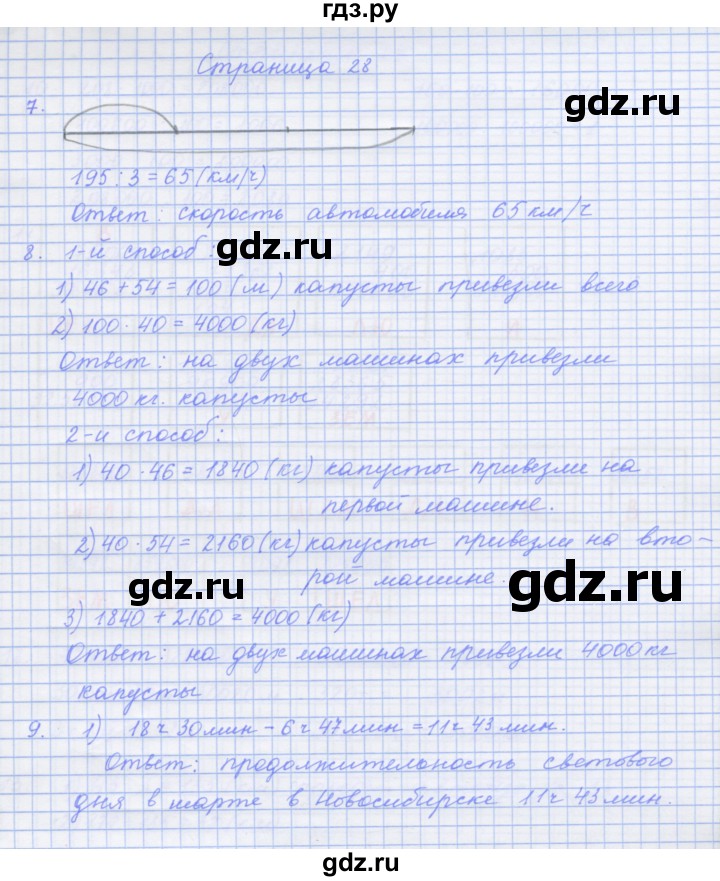 гдз.ру
Страница 28
gdz.ru
7.
195 : 3 = 65 (км/ч)
Ответ: скорость автомобиля 65 км/ч
gdz.ru
8. 1-й способ:
1) 46 + 54 = 100 (м) капусты привезли всего
2) 100 · 40 = 4000 (кг)
Ответ: на двух машинах привезли
4000 кг. капусты
2-й способ:
1) 40 · 46 = 1840 (кг) капусты привезли на
первой машине.
2) 40 · 54 = 2160 (кг) капусты привезли на вто-
рой машине.
gdz.ru
gdz.ru
3) 1840 + 2160 = 4000 (кг)
Ответ: на двух машинах привезли 4000 кг
капусты
9. 1) 18 ч 30 мин - 6 ч 47 мин = 11 ч 43 мин.
Ответ: продолжительность светового
дня в марте в Новосибирске 11 ч 43 мин.
gdz.ru